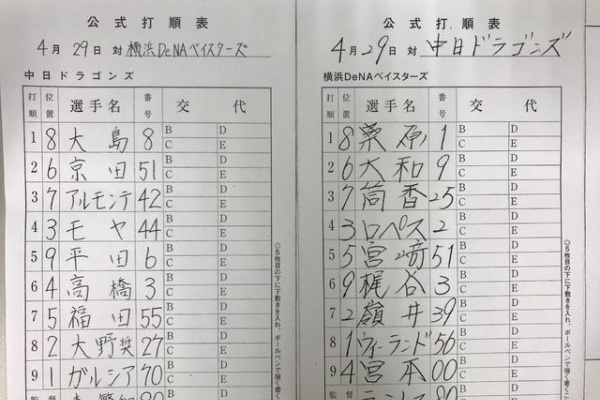 公式打順表
4月29日 対 横浜DeNAベイスターズ
中日ドラゴンズ
打順 位置 選手名 番号 交代
1 8 大島 8 B D C E
2 6 京田 51 B D C E
3 7 アルモンテ 42 B D C E
4 3 モヤ 44 B D C E
5 9 平田 6 B D C E
6 4 高橋 3 B D C E
7 5 福田 55 B D C E
8 2 大野奨 27 B D C E
9 1 ガルシア 70 B D C E
○5枚目の下に下敷きを入れ、ボールペンで強く書く
公式打順表
4月29日 対 中日ドラゴンズ
横浜DeNAベイスターズ
打順 位置 選手名 番号 交代
1 8 桑原 1 B D C E
2 6 大和 9 B D C E
3 7 筒香 25 B D C E
4 3 ロペス 2 B D C E
5 5 宮﨑 51 B D C E
6 9 梶谷 3 B D C E
7 2 嶺井 39 B D C E
8 1 ウィーランド 56 B D C E
9 4 宮本 00 B D C E
○5枚目の下に下敷きを入れ、ボールペンで強く書く